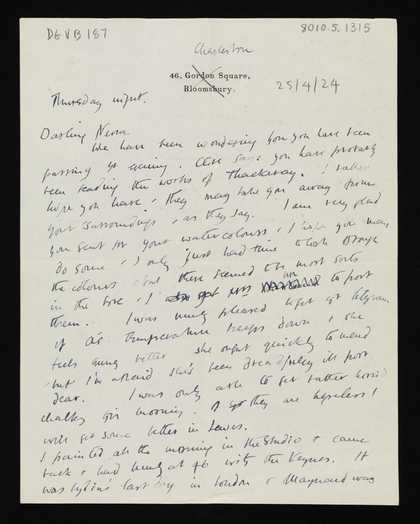 DGVB 187
8010.5.1315
Charleston
46, Gordon Square,
Bloomsbury.
25/4/24
Thursday night.
Darling Nessa
We have been wondering how you have been
passing yr evening. Clive says you have probably
been reading the works of Thackeray. I rather
hope you have & they may take you away from
your surroundings, as they say. I am very glad
you sent for your watercolours & I hope you may
do some. I only just had time to look through
the colours but there seemed the most sorts
in the box, & I to post
them. I was very pleased to get yr telegram
if As temperature keeps down & she
feels better she ought quickly to mend
but I'm afraid she's been dreadfully ill poor
dear. I was only able to get rather horrid
chalks this morning. If they are hopeless I
will get some better in Lewes.
I painted all the morning in the Studio & came
back & had lunch at 46 with the Keynes. It
was Lydia's last day in London & Maynard was